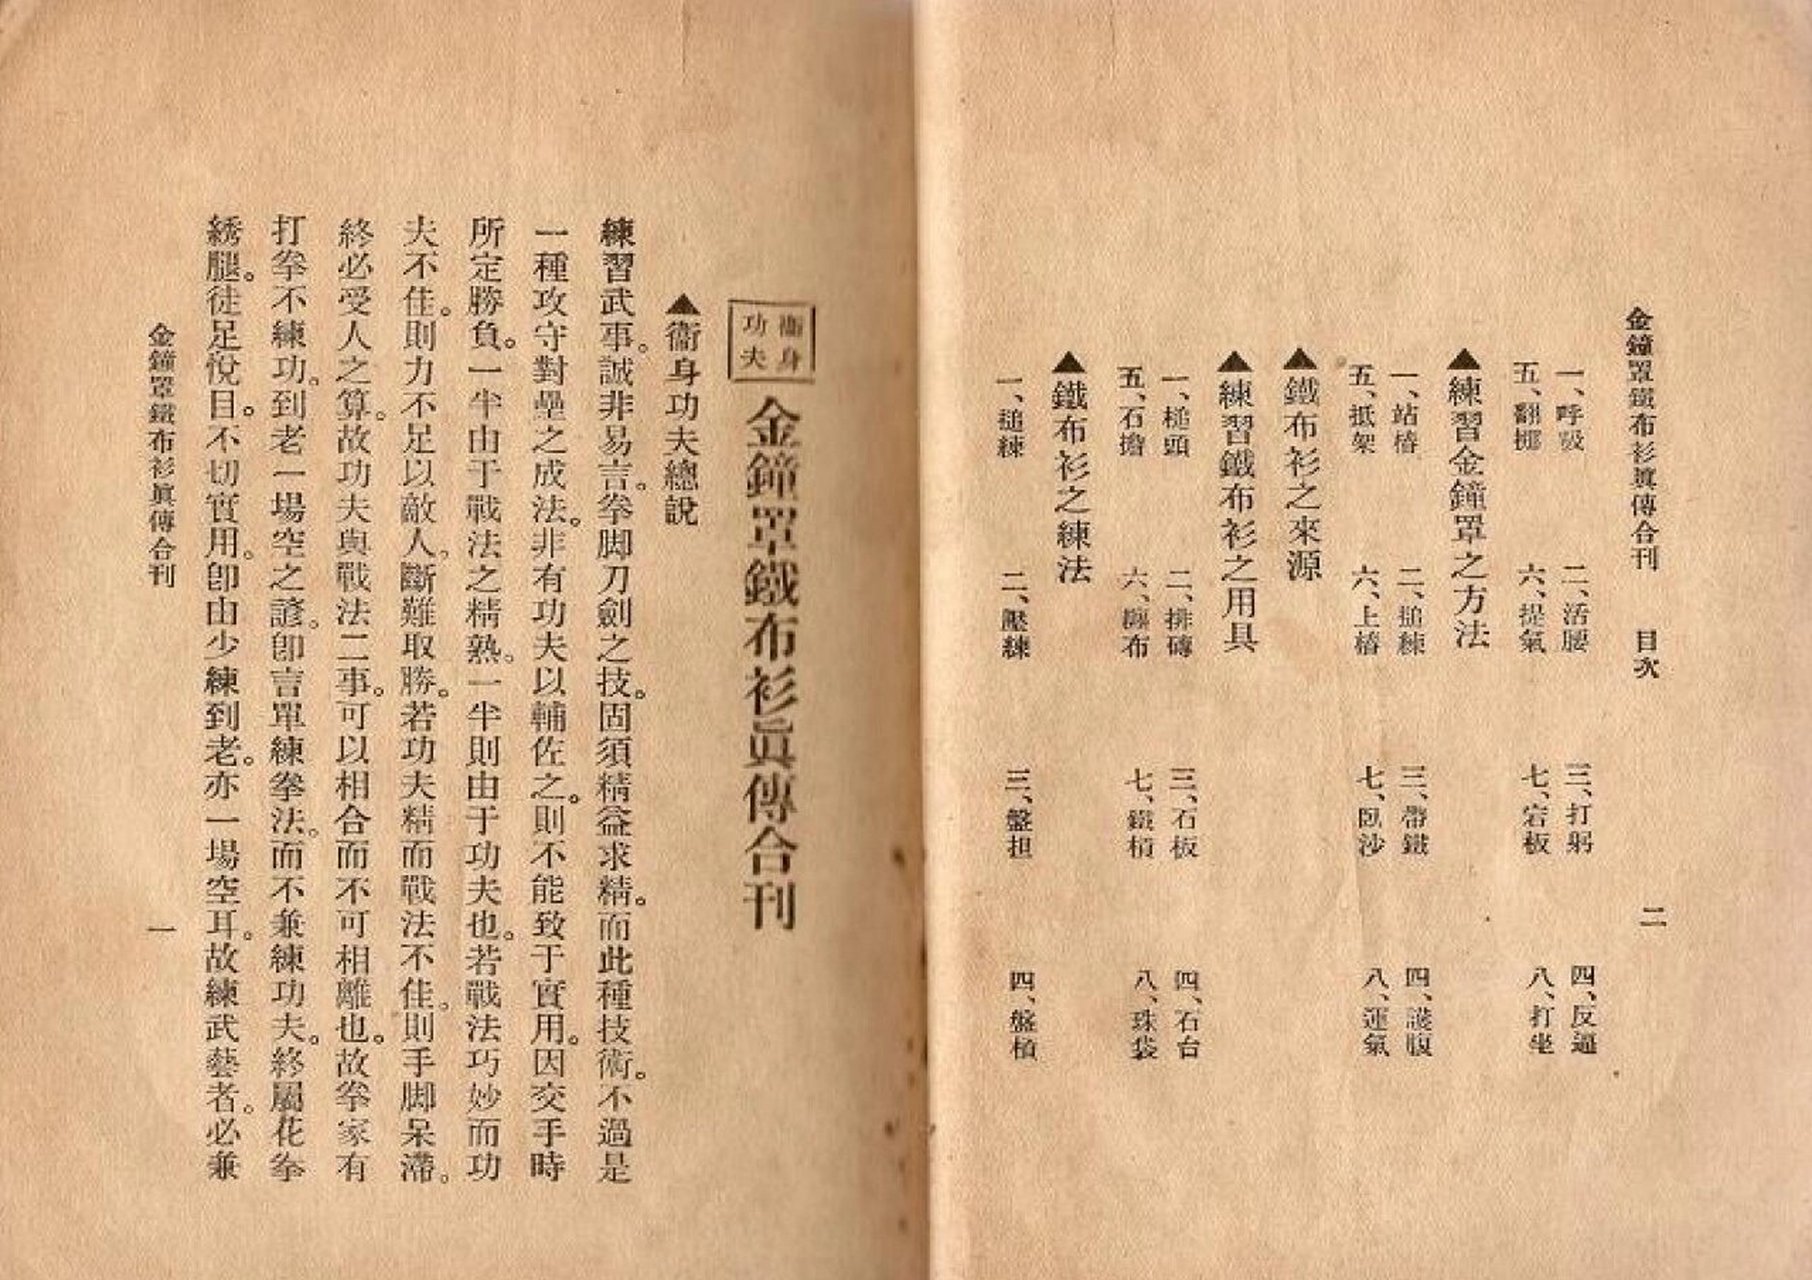 金鐘罩鐵布衫眞傳合刊 目次 二
一、呼吸 二、活腰 三、打躬 四、反逼
五、翻挪 六、提氣 七、宕板 八、打坐
▲練習金鐘罩之方法
一、站樁 二、搥練 三、帶鐵 四、護腹
五、抵架 六、上樁 七、臥沙 八、運氣
▲鐵布衫之來源
▲練習鐵布衫之用具
一、槌頭 二、排磚 三、石板 四、石台
五、石擔 六、纏布 七、鐵槓 八、珠袋
▲鐵布衫之練法
一、搥練 二、壓練 三、盤担 四、盤槓
衞身功夫 金鐘罩鐵布衫眞傳合刊
▲衞身功夫總說
練習武事。誠非易言。拳脚刀劍之技。固須精益求精。而此種技術。不過是
一種攻守對壘之成法。非有功夫以輔佐之。則不能致于實用。因交手時
所定勝負。一半由于戰法之精熟。一半則由于功夫也。若戰法巧妙而功
夫不佳。則力不足以敵人。斷難取勝。若功夫精而戰法不佳。則手脚呆滯。
終必受人之算。故功夫與戰法二事。可以相合而不可相離也。故拳家有
打拳不練功。到老一場空之諺。卽言單練拳法。而不兼練功夫。終屬花拳
綉腿。徒足悅目。不切實用。卽由少練到老。亦一場空耳。故練武藝者。必兼
金鐘罩鐵布衫眞傳合刊 一